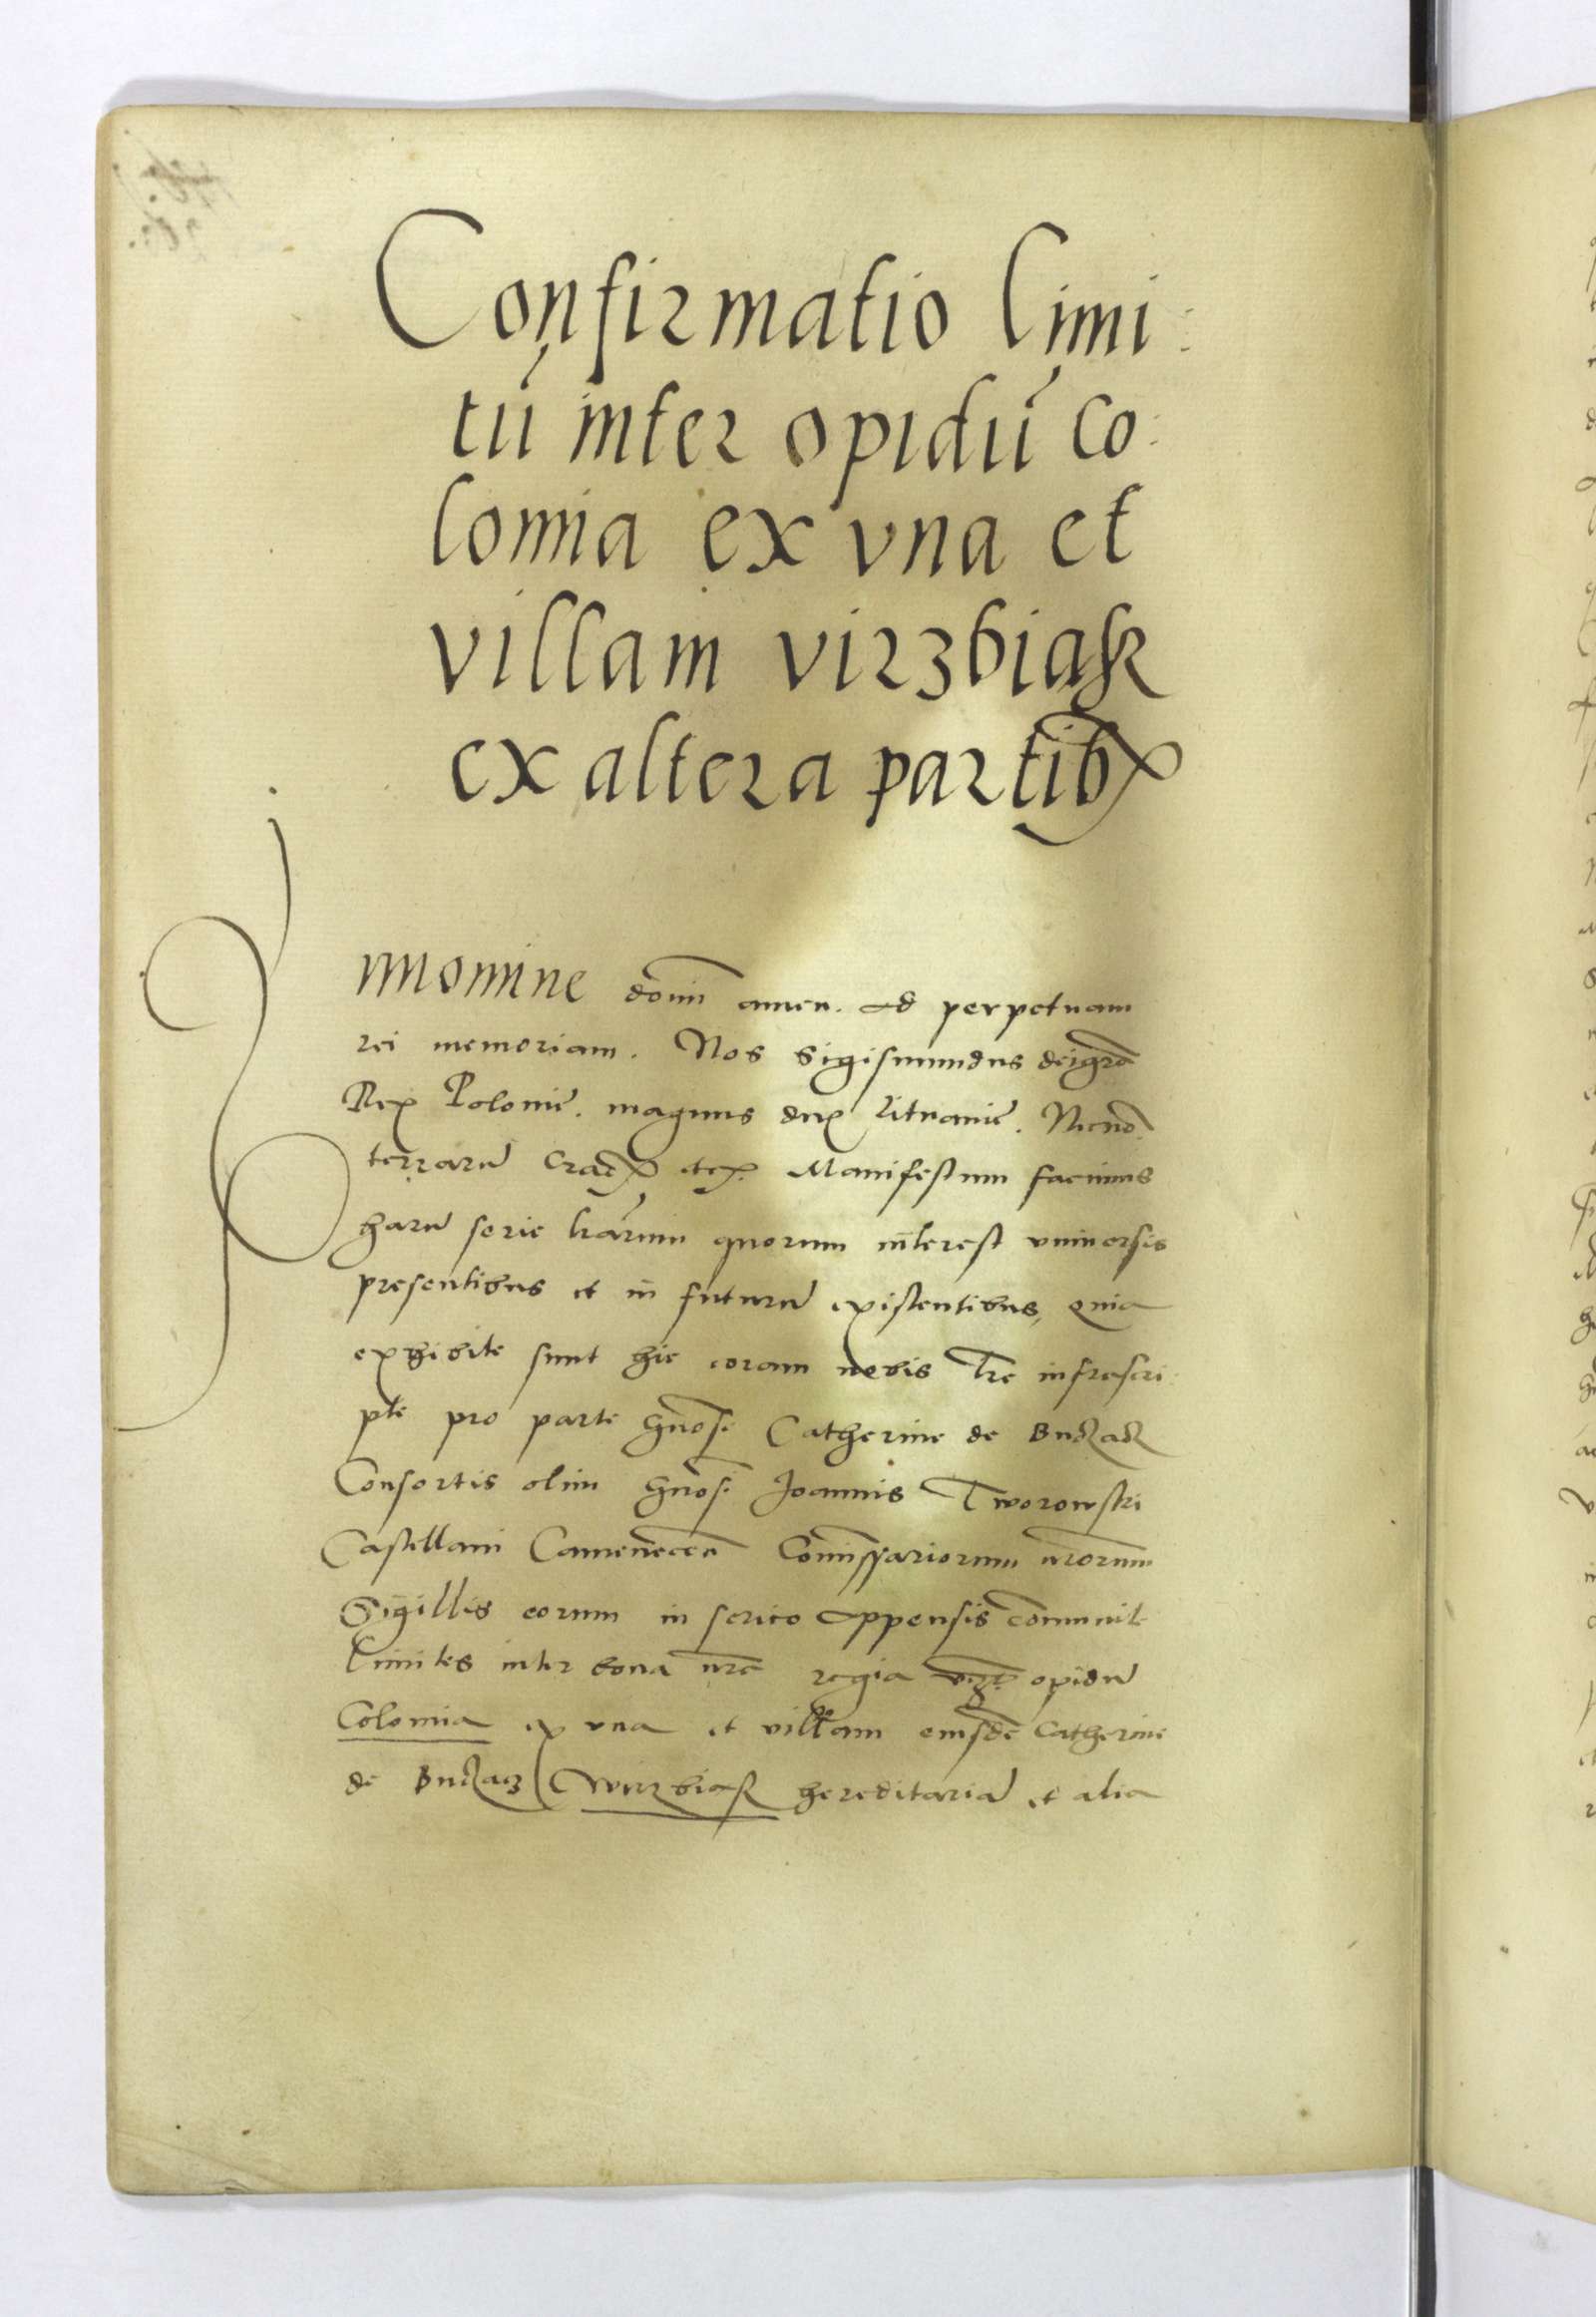 Confirmatio limi:
tū inter opidū Co:
lomia ex vna et
villam virzbiasz
ex altera partibꝫ
Innomine domī amen. ad perpetuam
rei memoriam. Nos Sigismundus deigrā
Rex Polonie. magnus dux Lituanie. Necnō
terrarū Cracꝫ etcꝫ. Manifestum facimus
harū serie lrārum quorum interest vniuersis
presentibus et in futurū existentibus, quia
exhibite sunt hic coram nobis lrē infrascri:
pte pro parte gnose Catherine de Buczacz
Consortis olim gnosi Joannis Tworowski
Castellani Camenecen̄ Comissariorum nrorum
Sigillis eorum in serico appensis cōmunit
limites inter bona nrā regia vizt opidū
Colomia ex vna et villam eiusdē Catherine
de Buczacz Wirzbiasz hereditariā et alia